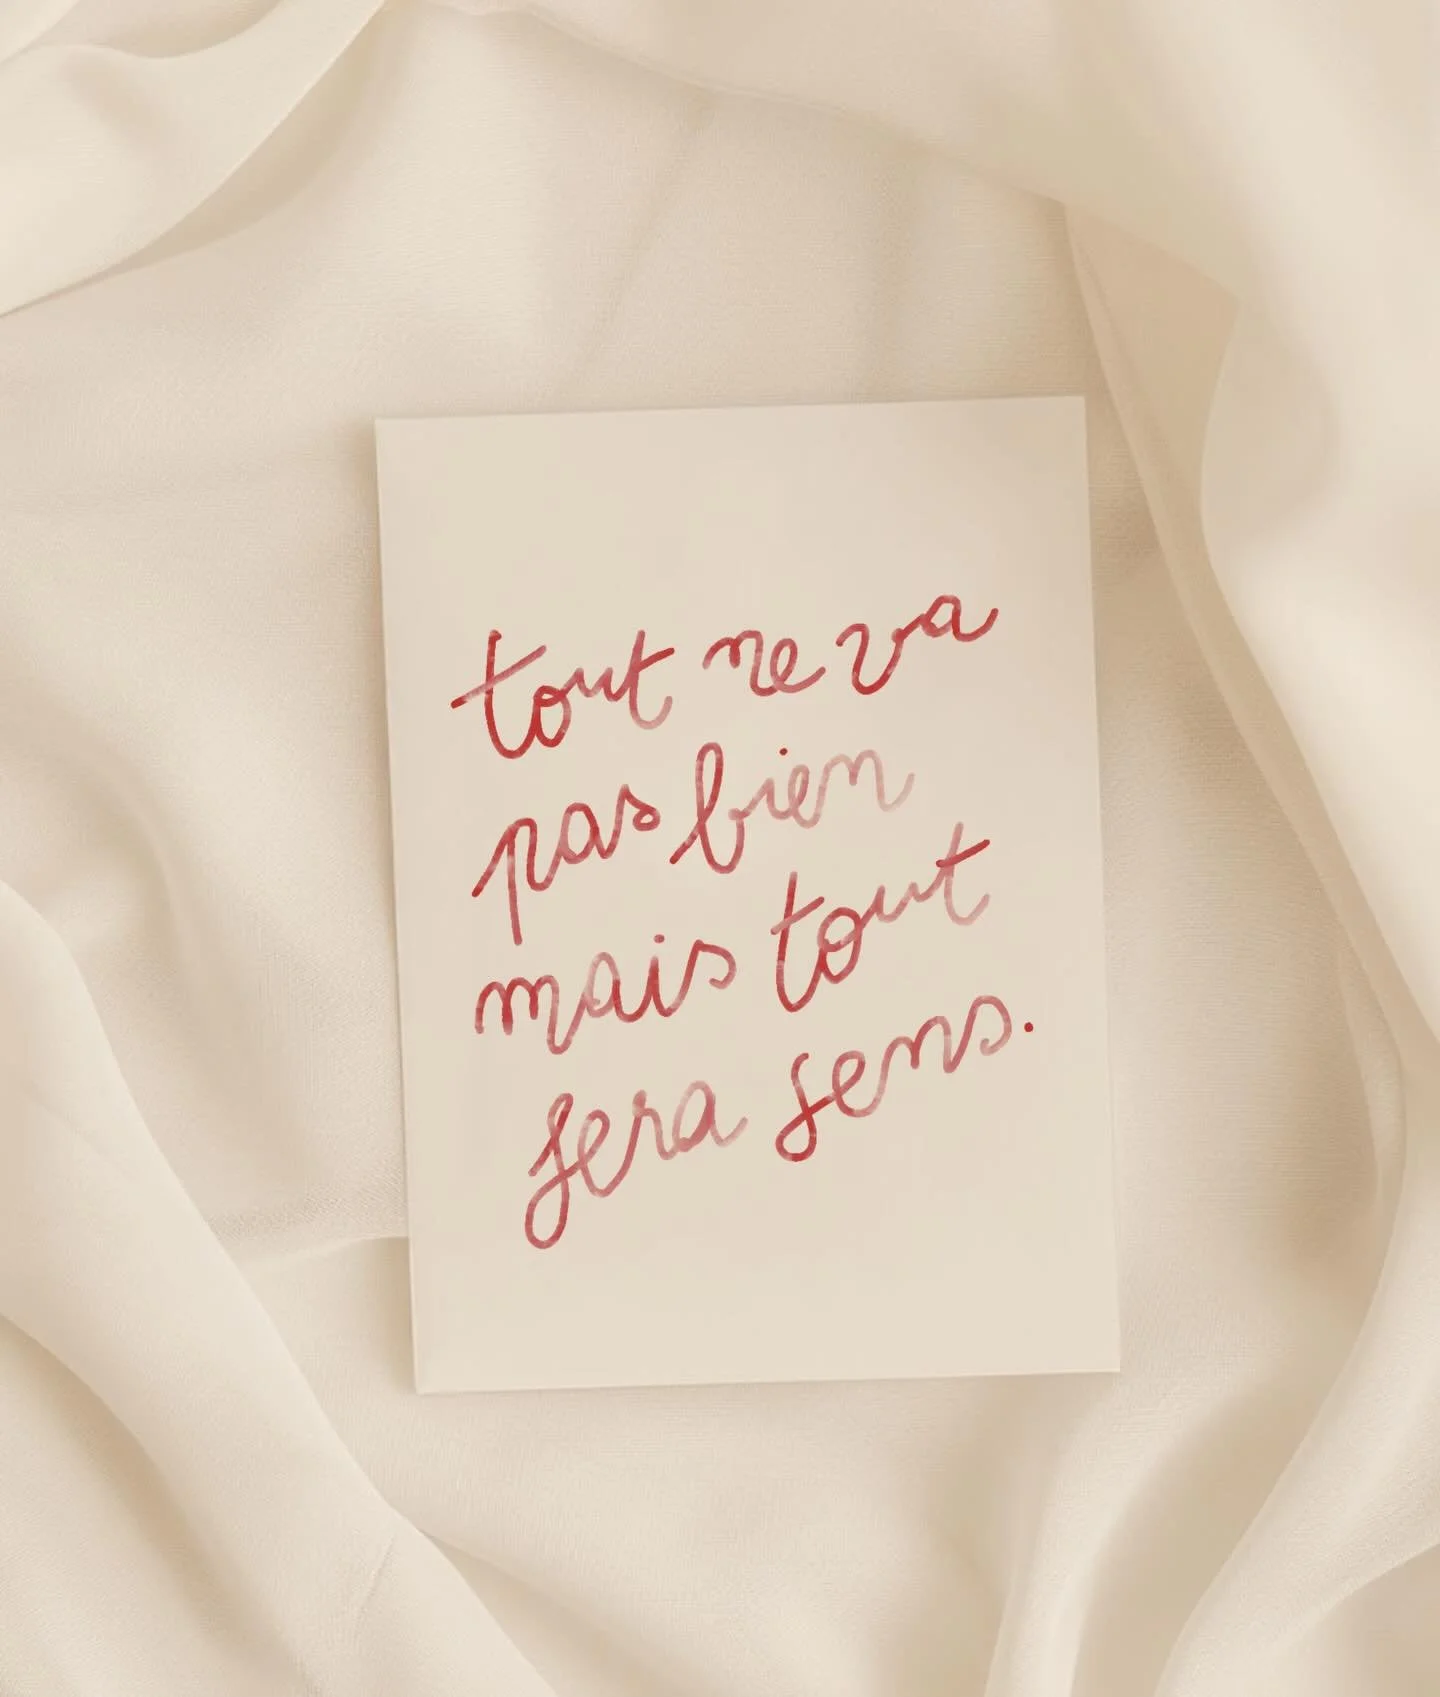 tout ne va
pas bien
mais tout
sera sens.